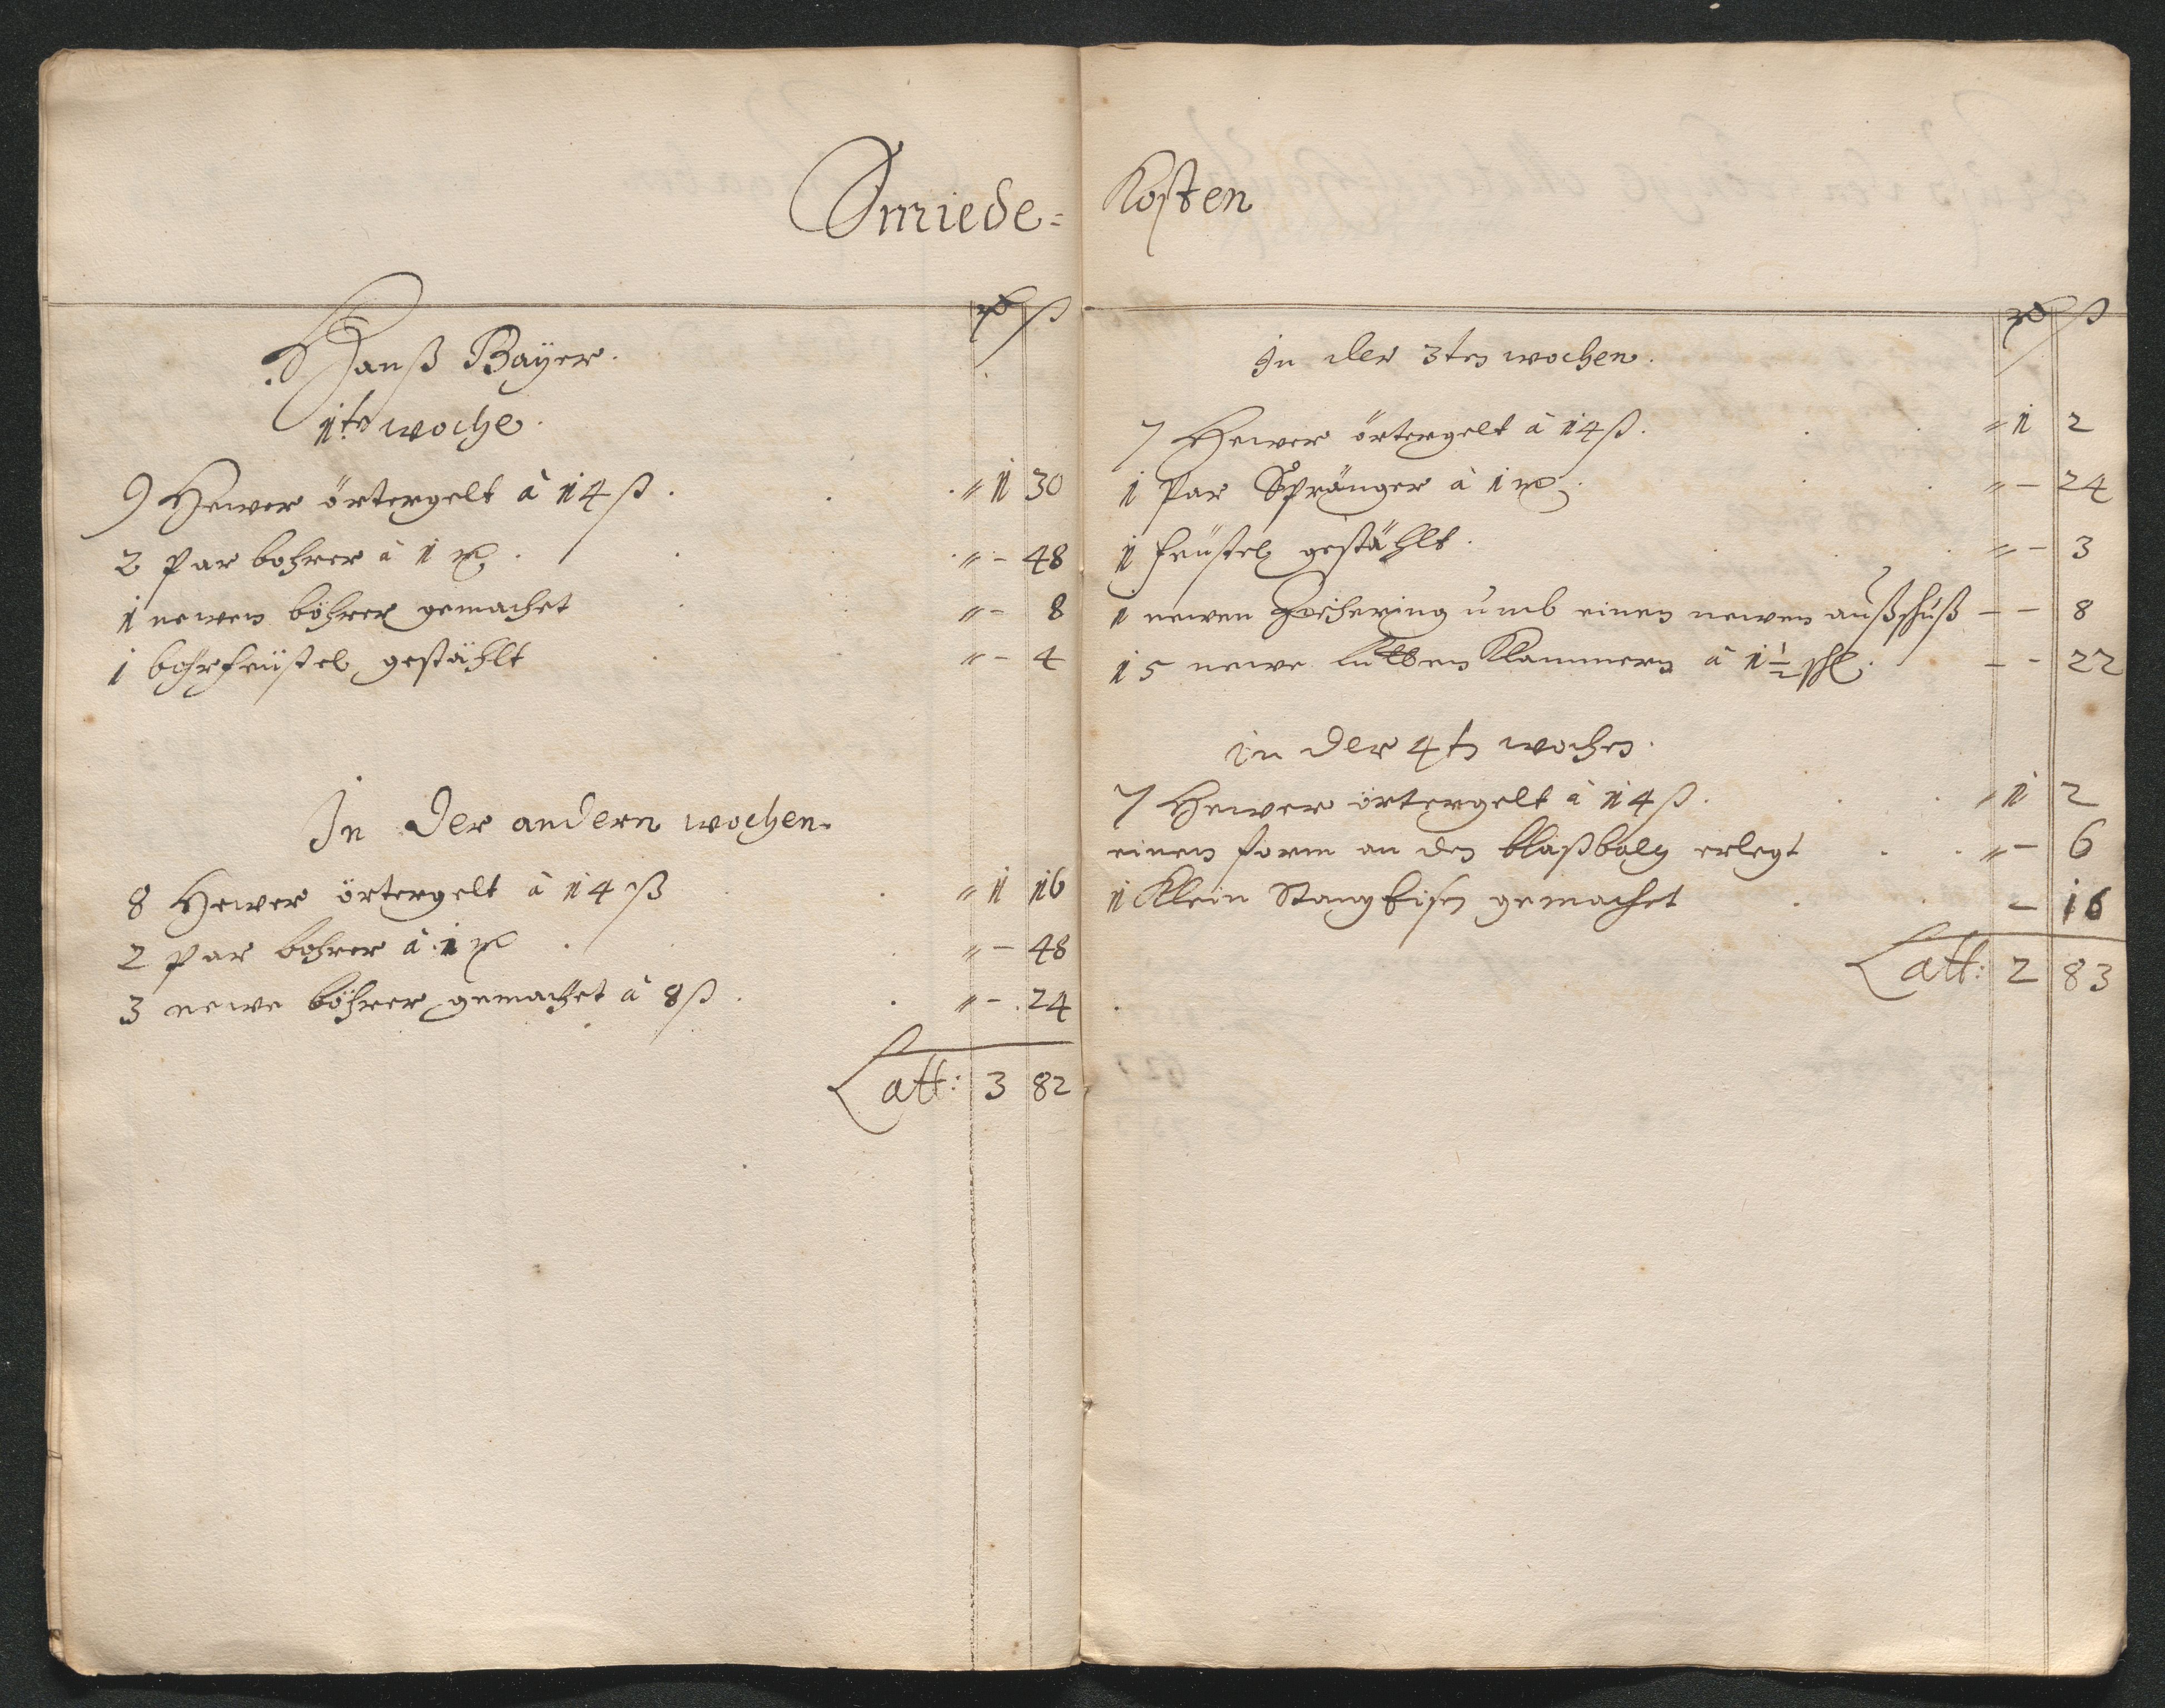 Smiede=
Rdr ß
Hanß Bayer.
1te woche.
9 Hewer örtergelt à 14 ß. " 1 30
2 par bohrer à 1 " - 48
1 newen böhrer gemachet " - 8
1 bohrfeüstel gestählt " - 4
In der andern wochen.
8 Hewer örtergelt à 14 ß " 1 16
2 par bohrer à 1 " - 48
3 newe böhrer gemachet à 8 ß. " - 24
Latt: 3 82
Kosten
Rdr ß
In der 3ten wochen.
7 Hewer örtergelt à 14 ß. " 1 2
1 Par Spränger à 1 " - 24
1 feüstel gestählt. " - 3
1 newen umb einen newen außschuß - - 8
15 newe Klammern à 1½ - - 22
in der 4tn wochen.
7 Hewer örtergelt à 14 ß. " 1 2
einen form an den blaßbalg erlegt " - 6
1 Klein Stangeisen gemachet - 16
Latt: 2 83